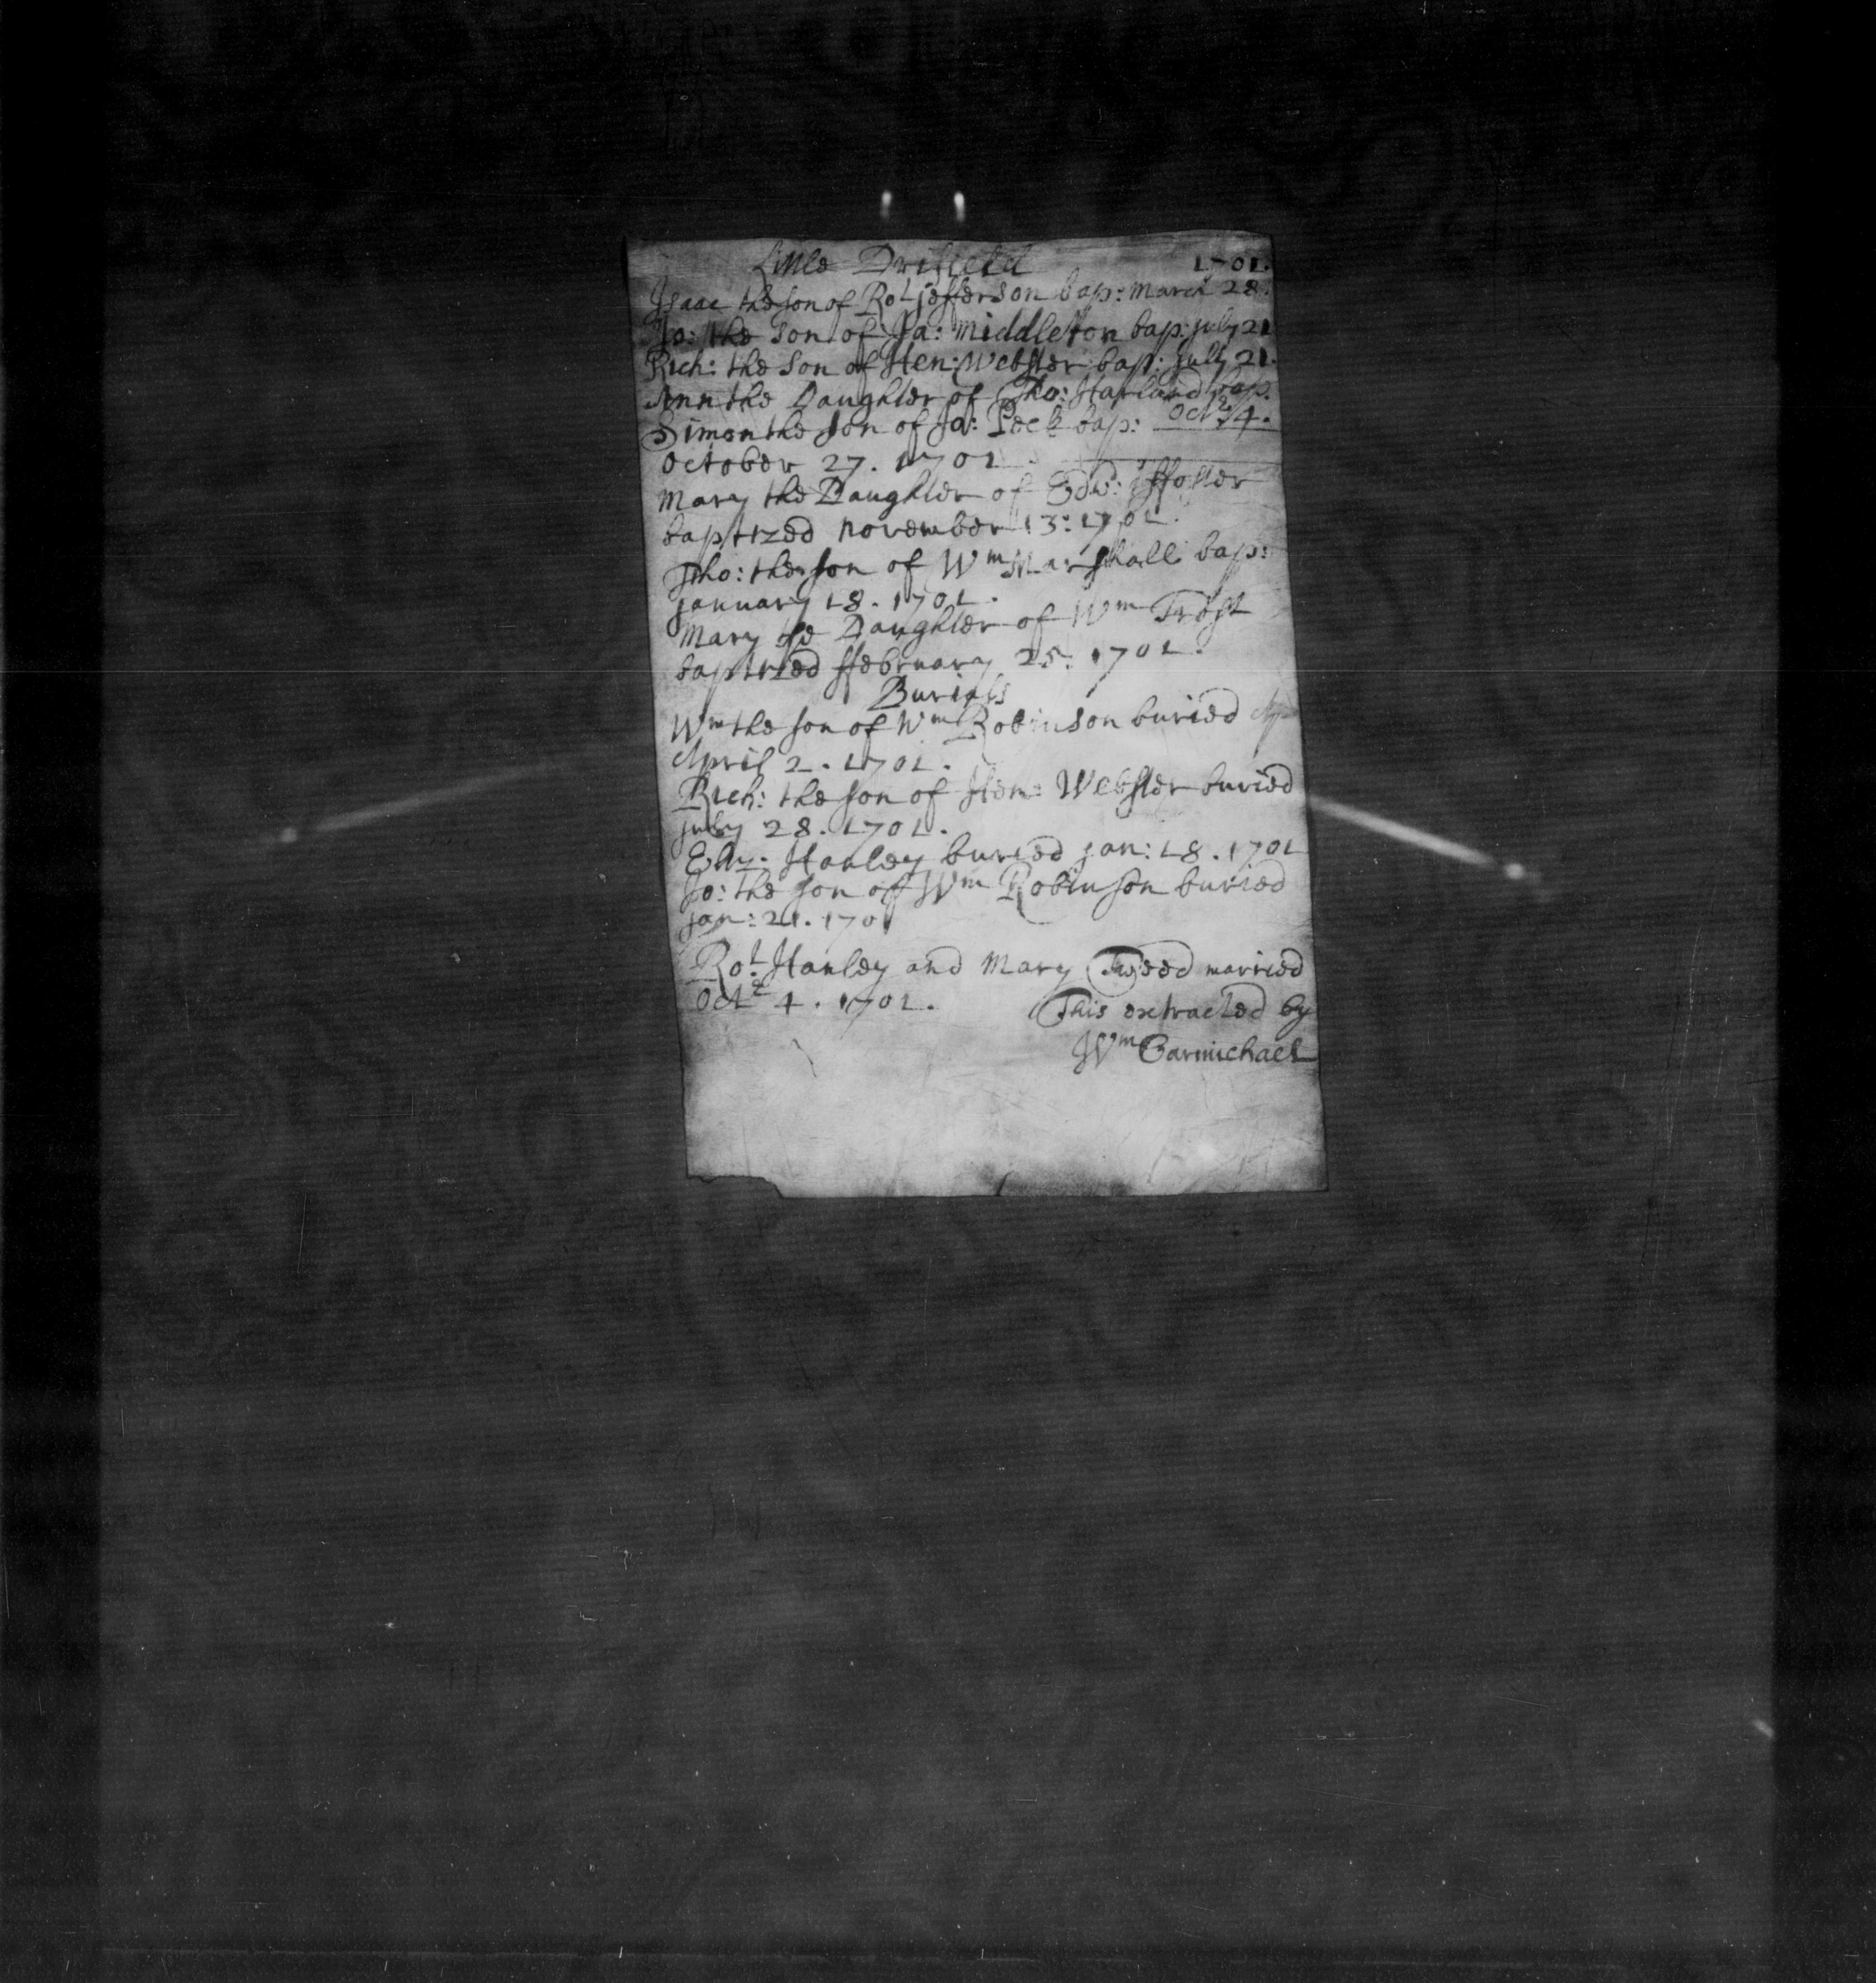 Little Drifield 1701.
Isaac the son of Rot jefferson bap: march 28.
Jo: the son of Ja: middleton bap: july 21
Rich: the Son of Hen: Webster bap: july 21.
Ann the Daughter of Tho: Harland bap.
Octr 4.
Simon the son of Ja: Peck bap:
October 27. 1701.
Mary the Daughter of Edw: ffoster
baptized november 13: 1701.
Tho: the son of Wm Marshall bap:
january 18. 1701.
Mary the Daughter of Wm Frost
baptized ffebruary 25. 1701.
Burials
Wm the son of Wm Robinson buried Ap
April 2. 1701.
Rich: the son of Hen: Webster buried
july 28. 1701.
Hanley buried jan: 18. 1701
Jo: the son of Wm Robinson buried
jan: 21. 1701
Rot Hanley and Mary Tweed married
Octr 4. 1701.
This extracted by
Wm Carmichael